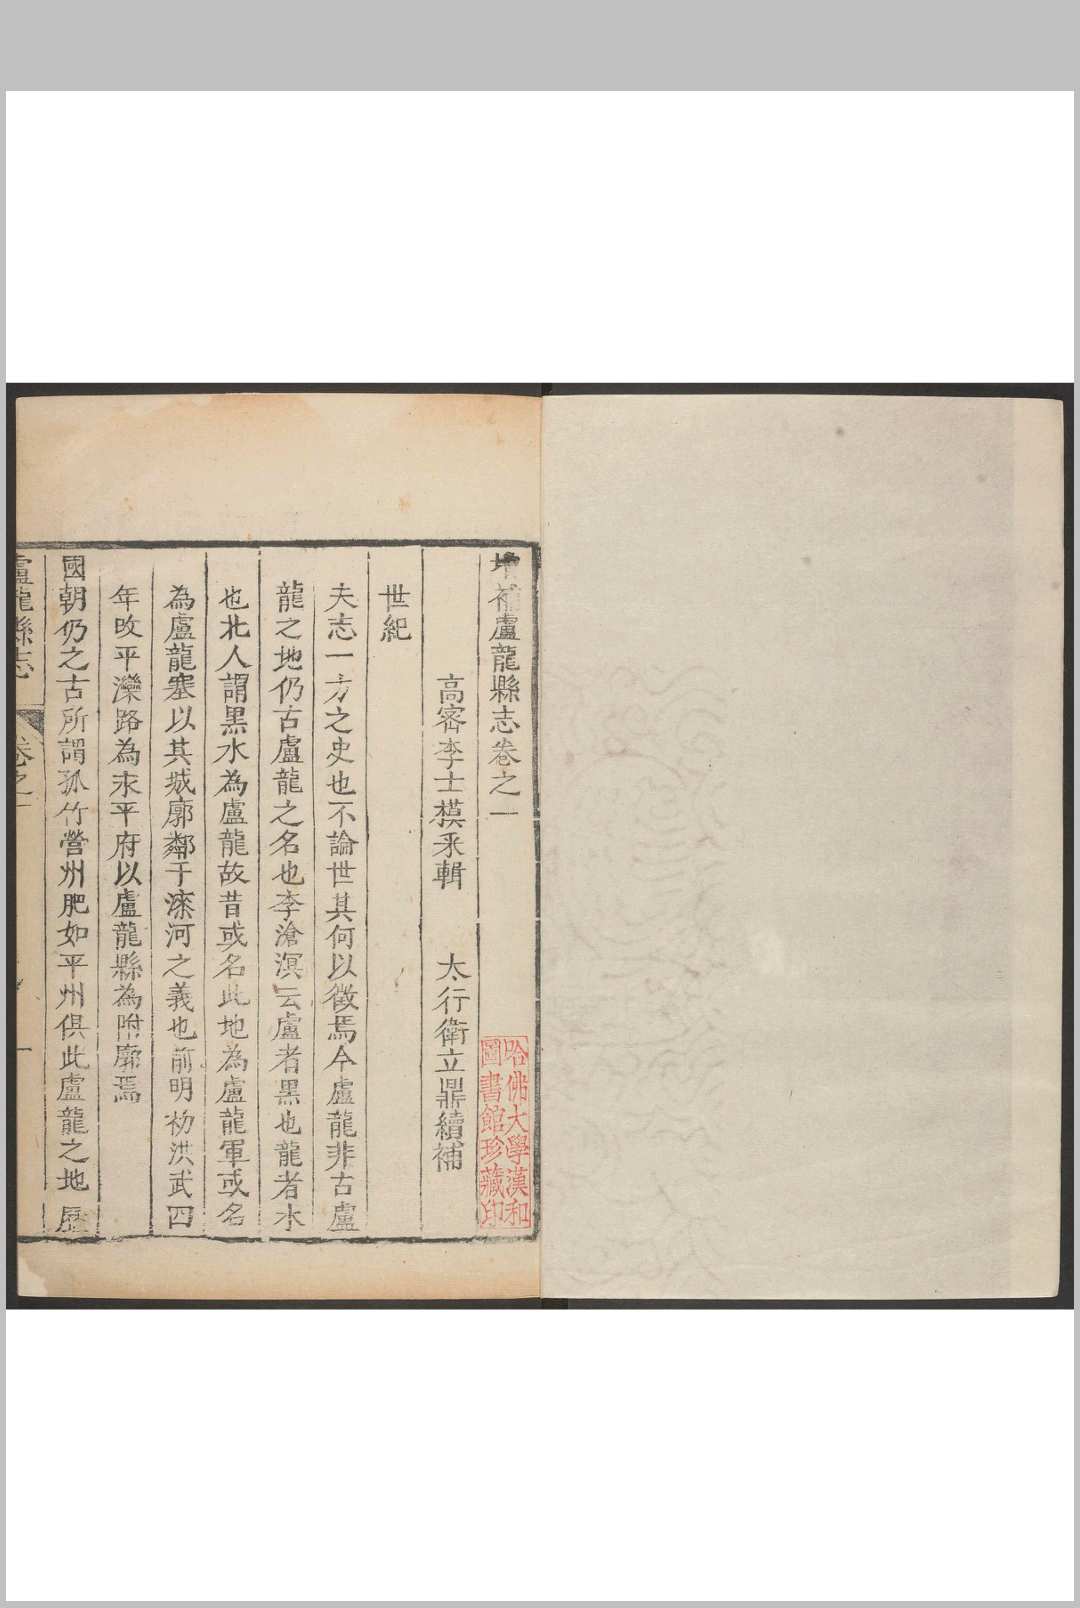 增補盧龍縣志卷之一
高密李士模采輯　太行衛立鼎續補
世紀
夫志一方之史也不論世其何以徵焉今盧龍非古盧
龍之地仍古盧龍之名也李滄溟云盧者黑也龍者水
也北人謂黑水為盧龍故昔或名此地為盧龍軍或名
為盧龍塞以其城廓鄰于漆河之義也前明初洪武四
年改平灤路為永平府以盧龍縣為附廓焉
國朝仍之古所謂孤竹營州肥如平州俱此盧龍之地歷
盧龍縣志　卷之一　一
哈佛大學漢和
圖書館珍藏印